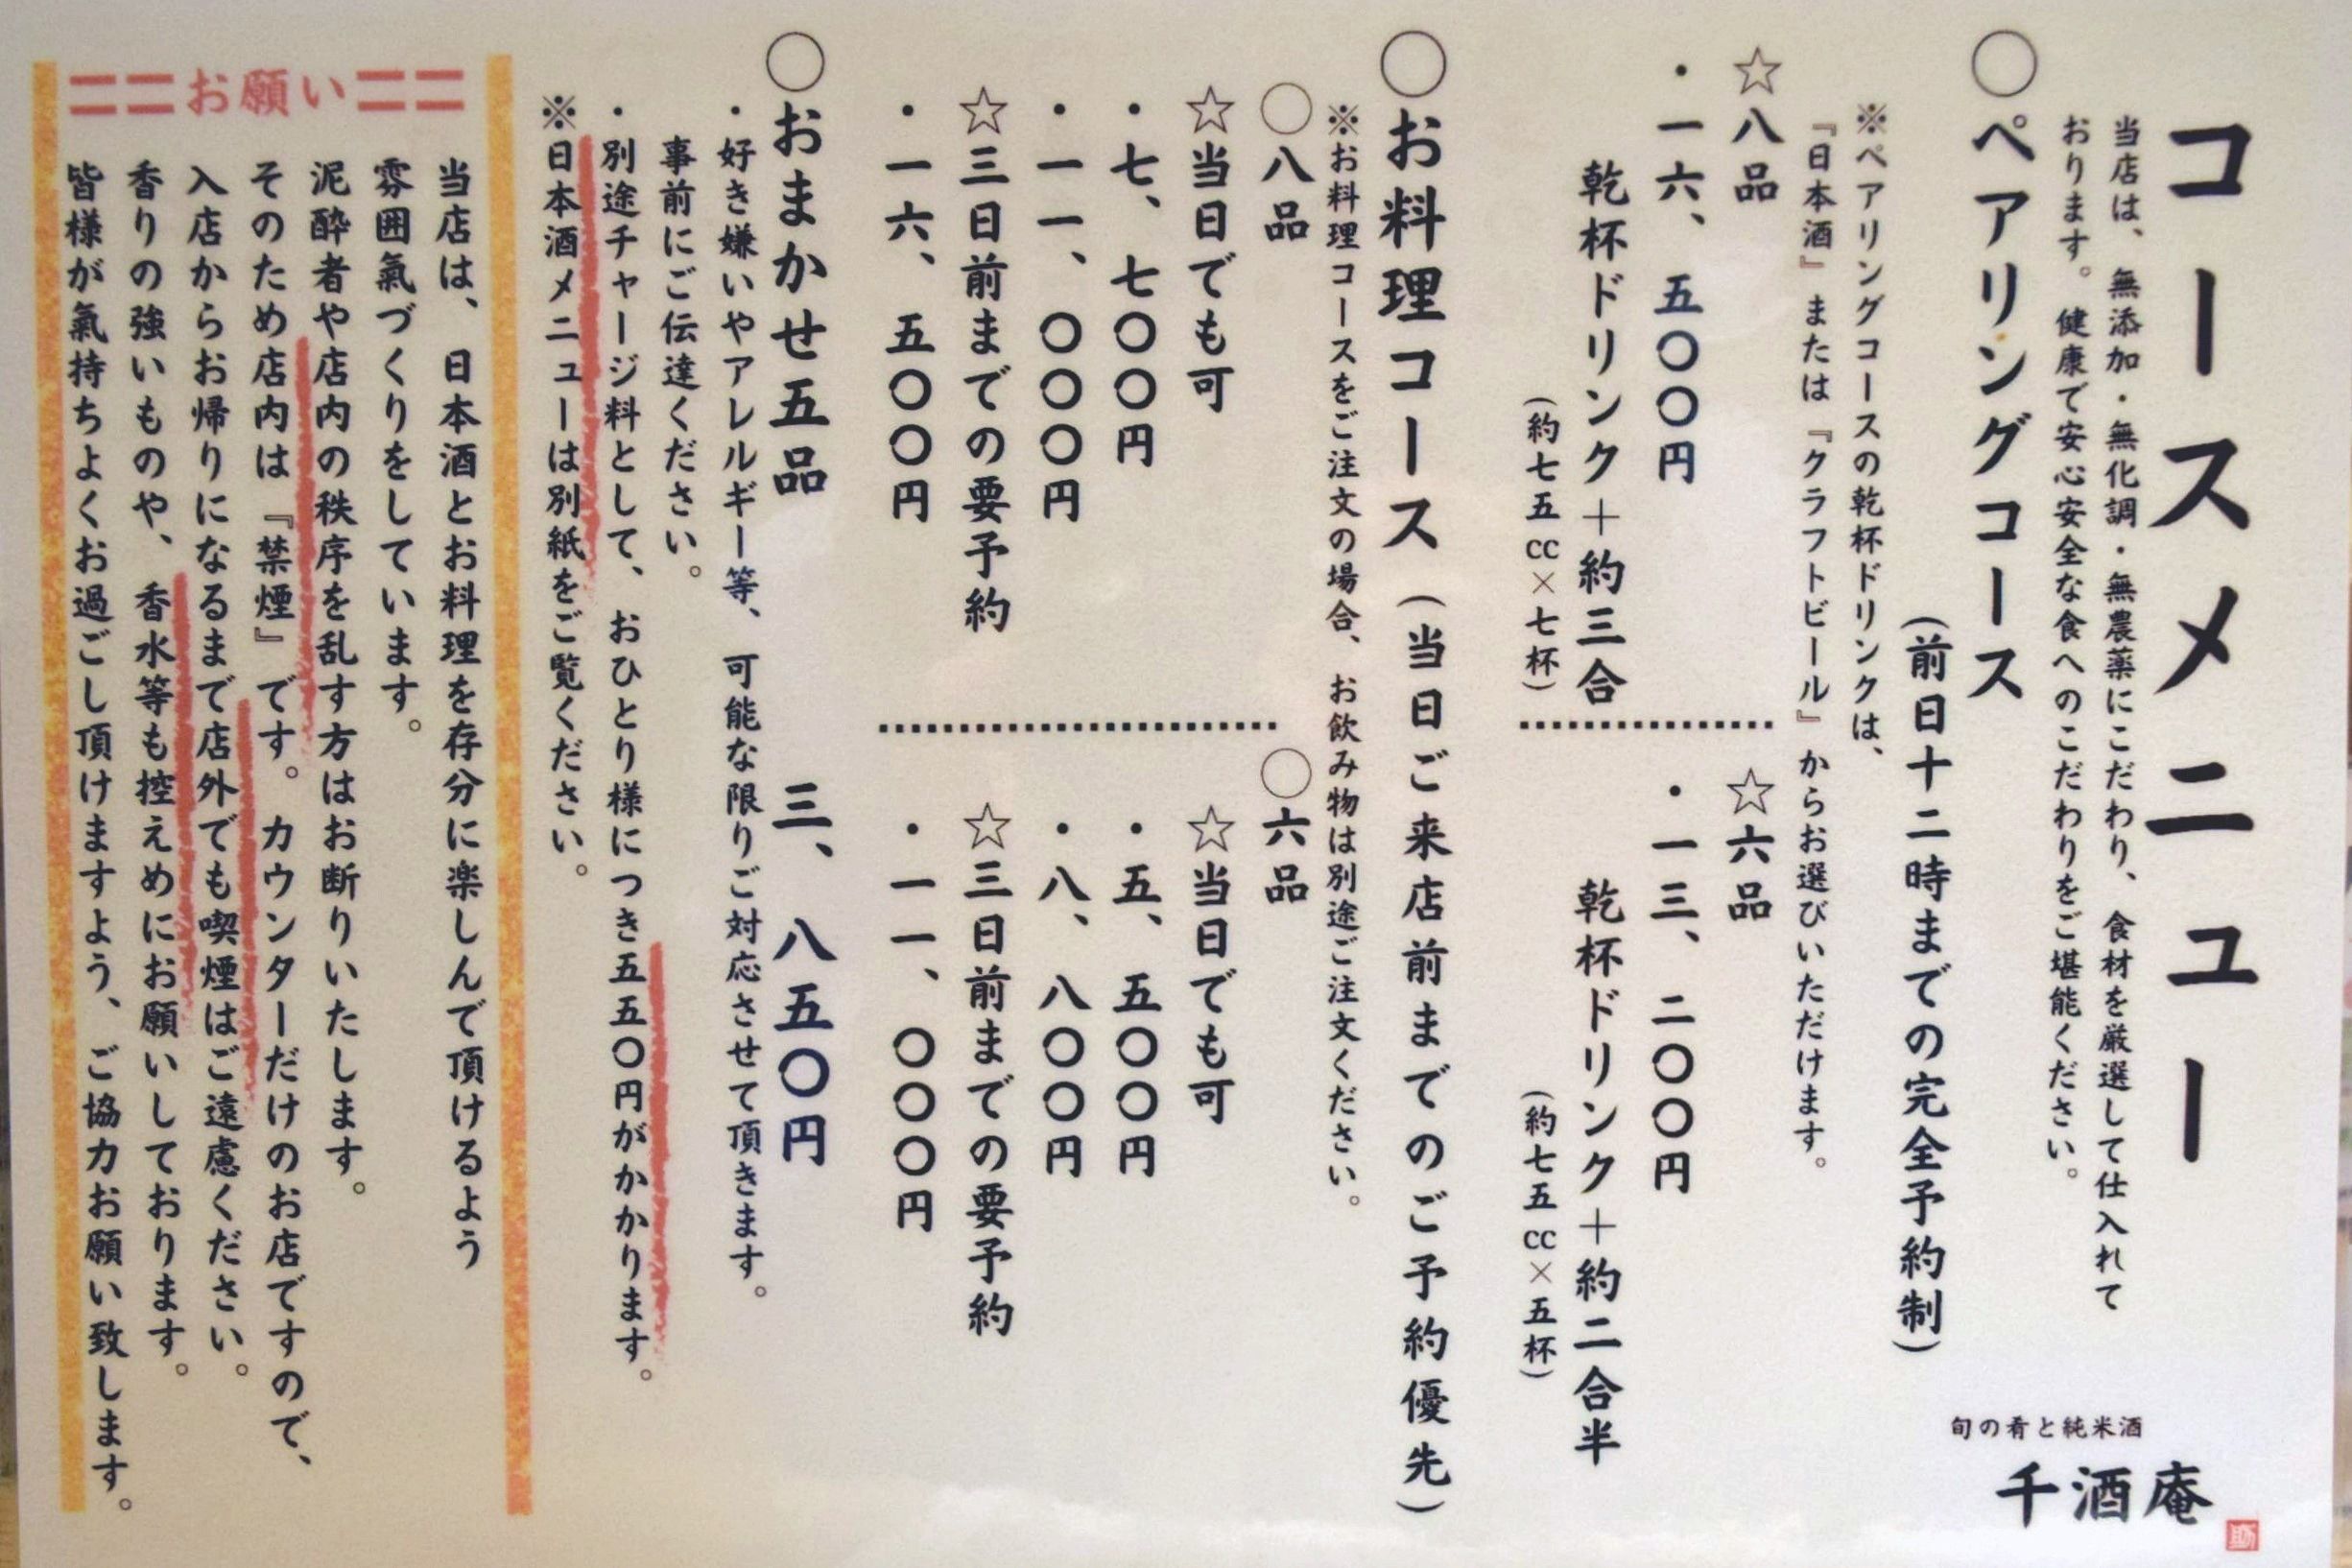 コースメニュー
当店は、無添加・無化調・無農薬にこだわり、食材を厳選して仕入れて
おります。健康で安心安全な食へのこだわりをご堪能ください。
○ペアリングコース
(前日十二時までの完全予約制)
※ペアリングコースの乾杯ドリンクは、
『日本酒』または『クラフトビール』からお選びいただけます。
☆八品
・一六、五〇〇円
乾杯ドリンク＋約三合
(約七五cc×七杯)
☆六品
・一三、二〇〇円
乾杯ドリンク＋約二合半
(約七五cc×五杯)
○お料理コース(当日ご来店前までのご予約優先)
※お料理コースをご注文の場合、お飲み物は別途ご注文ください。
○八品
☆当日でも可
・七、七〇〇円
・一一、〇〇〇円
☆三日前までの要予約
・一六、五〇〇円
○六品
☆当日でも可
・五、五〇〇円
・八、八〇〇円
☆三日前までの要予約
・一一、〇〇〇円
○おまかせ五品 三、八五〇円
・好き嫌いやアレルギー等、可能な限りご対応させて頂きます。
事前にご伝達ください。
・別途チャージ料として、おひとり様につき五五〇円がかかります。
※日本酒メニューは別紙をご覧ください。
二二お願い二二
当店は、日本酒とお料理を存分に楽しんで頂けるよう
雰囲氣づくりをしています。
泥酔者や店内の秩序を乱す方はお断りいたします。
そのため店内は『禁煙』です。カウンターだけのお店ですので、
入店からお帰りになるまで店外でも喫煙はご遠慮ください。
香りの強いものや、香水等も控えめにお願いしております。
皆様が氣持ちよくお過ごし頂けますよう、ご協力お願い致します。
旬の肴と純米酒
千酒庵